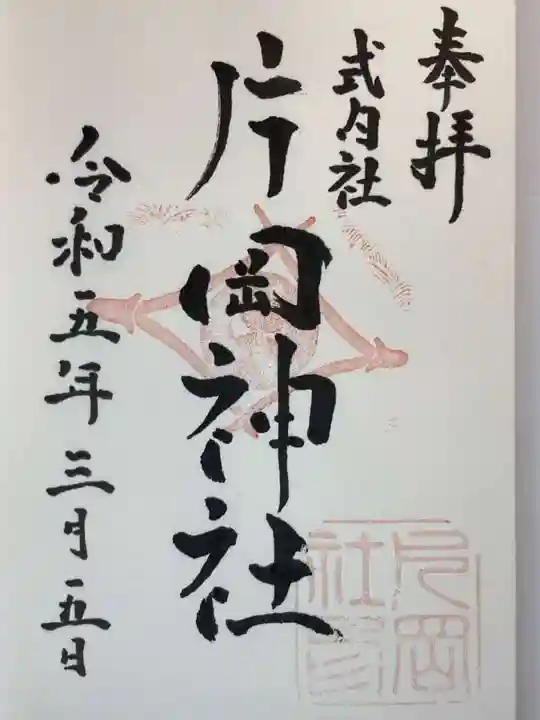 奉拝
式内社
片岡神社
令和五年三月五日
片岡
社